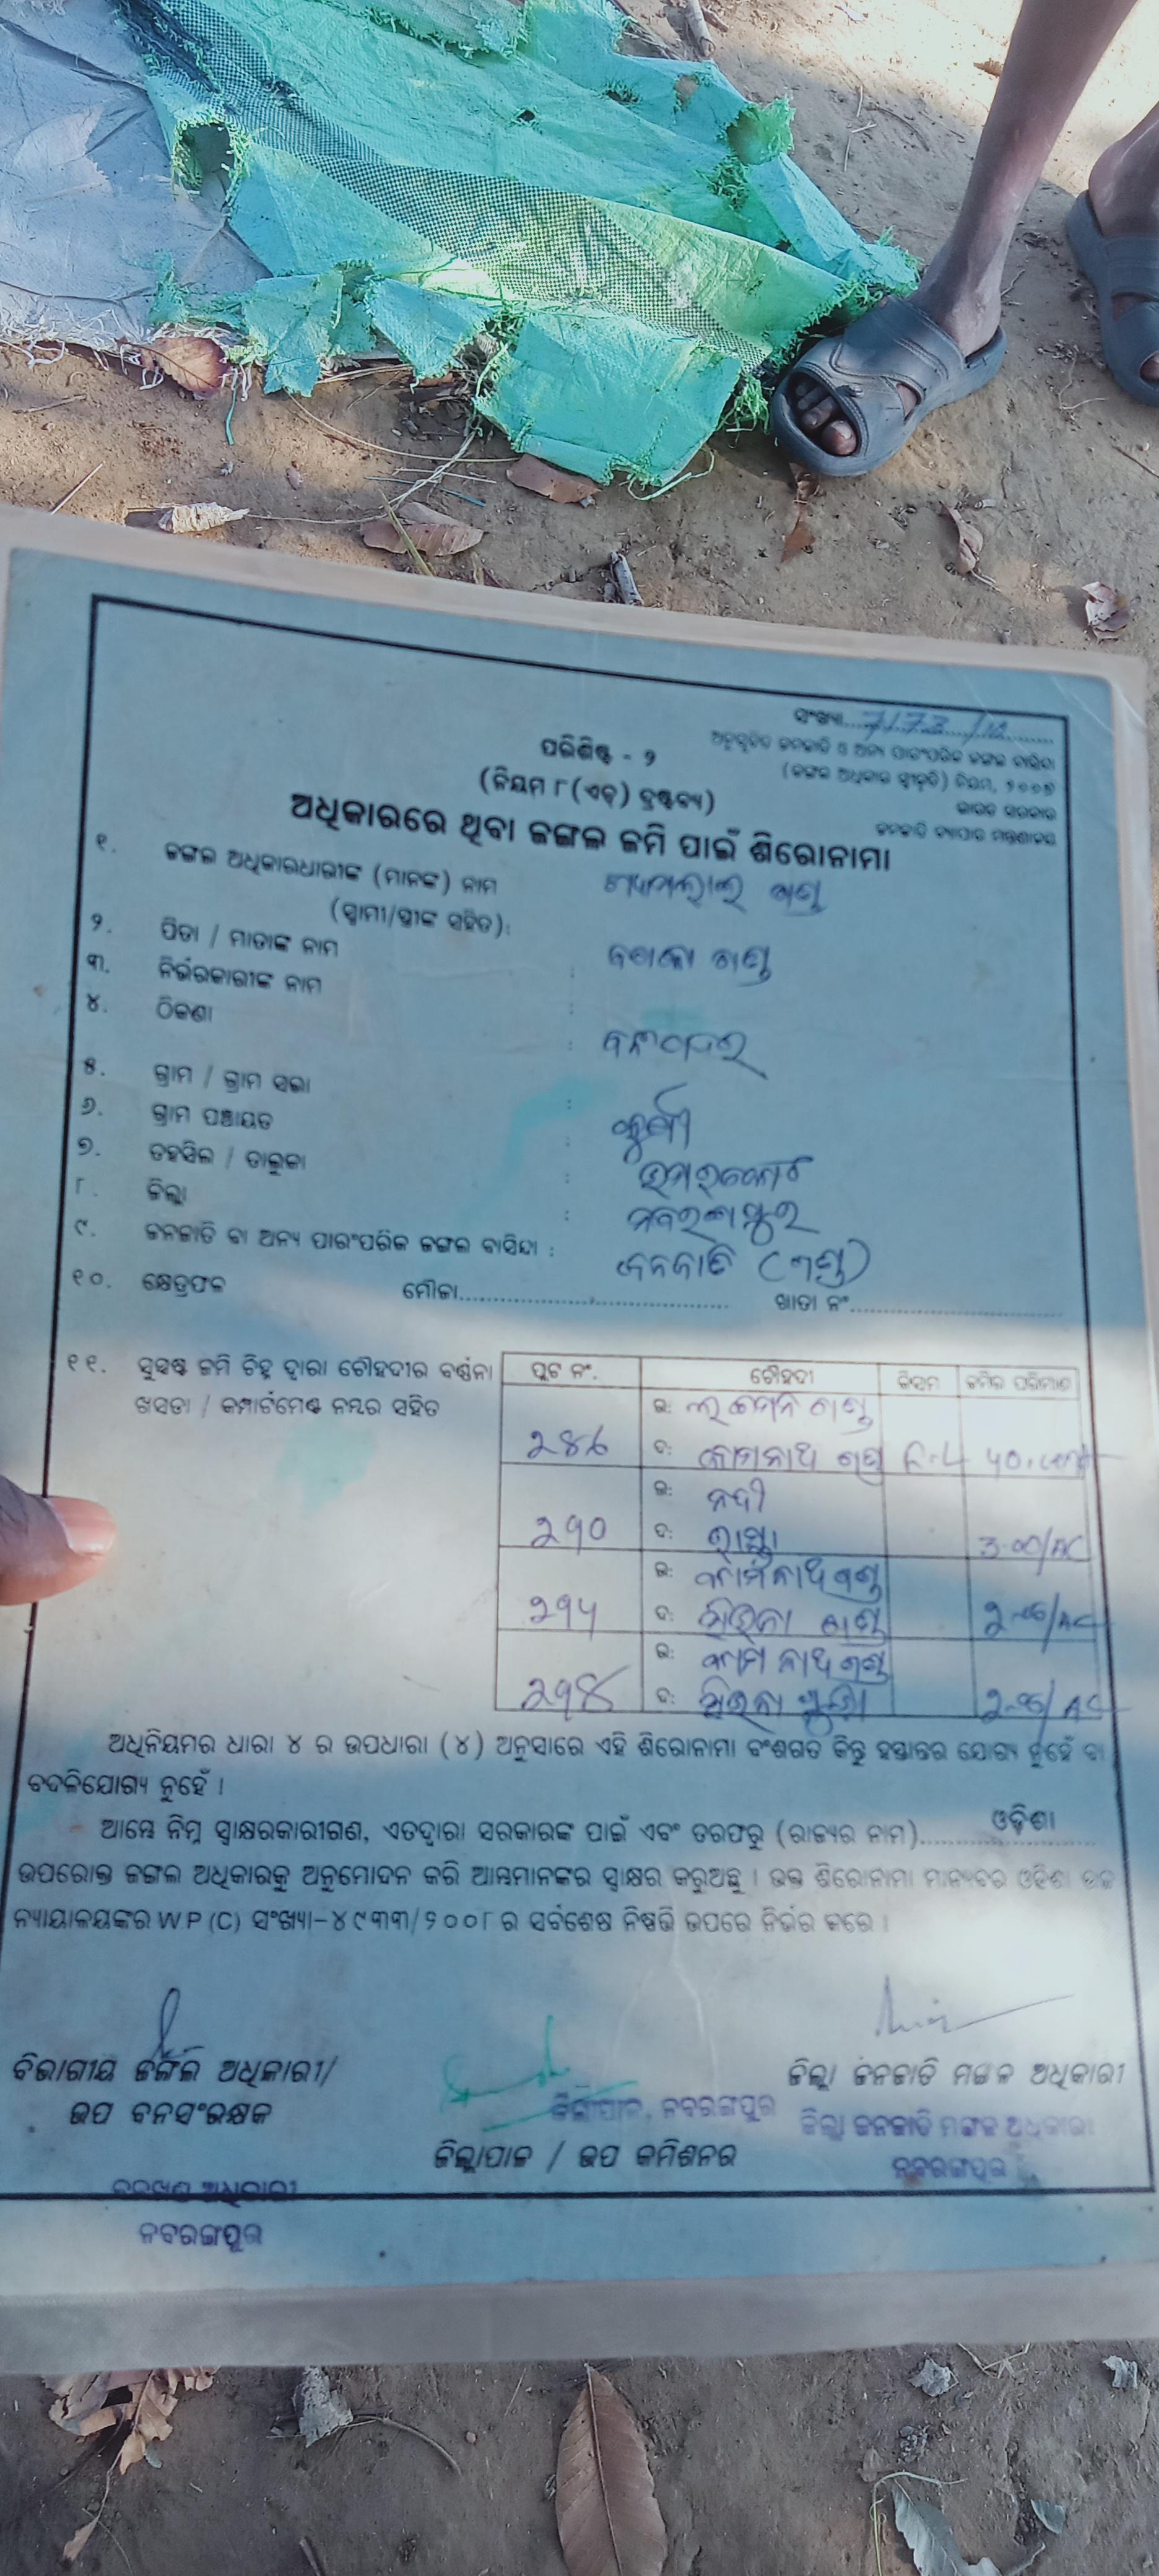 ସଂଖ୍ୟା....7173/10........
ପରିଶିଷ୍ଟ - ୨
ଅନୁସୂଚିତ ଜନଜାତି ଓ ଅନ୍ୟ ପାରଂପରିକ ଜଙ୍ଗଲ ବାସିନ୍ଦା
(ଜଙ୍ଗଲ ଅଧିକାର ସ୍ୱୀକୃତି) ନିୟମ, ୨୦୦୭
(ନିୟମ ୮(ଏଚ୍) ଦ୍ରଷ୍ଟବ୍ୟ)
ଭାରତ ସରକାର
ଜନଜାତି ବ୍ୟାପାର ମନ୍ତ୍ରଣାଳୟ
ଅଧିକାରରେ ଥିବା ଜଙ୍ଗଲ ଜମି ପାଇଁ ଶିରୋନାମା
୧. ଜଙ୍ଗଲ ଅଧିକାରଧାରୀଙ୍କ (ମାନଙ୍କ) ନାମ ଗଣ୍ଡ
(ସ୍ୱାମୀ/ସ୍ତ୍ରୀଙ୍କ ସହିତ):
୨. ପିତା / ମାତାଙ୍କ ନାମ ଗଣ୍ଡ
୩. ନିର୍ଭରକାରୀଙ୍କ ନାମ :
୪. ଠିକଣା :
୫. ଗ୍ରାମ / ଗ୍ରାମ ସଭା :
୬. ଗ୍ରାମ ପଞ୍ଚାୟତ :
୭. ତହସିଲ / ତାଲୁକା : ଉମରକୋଟ
୮. ଜିଲ୍ଲା : ନବରଙ୍ଗପୁର
୯. ଜନଜାତି ବା ଅନ୍ୟ ପାରଂପରିକ ଜଙ୍ଗଲ ବାସିନ୍ଦା : ଜନଜାତି (ଗଣ୍ଡ)
୧୦. କ୍ଷେତ୍ରଫଳ ମୌଜା................................ ଖାତା ନଂ..........................
୧୧. ସୁସ୍ପଷ୍ଟ ଜମି ଚିହ୍ନ ଦ୍ୱାରା ଚୌହଦୀର ବର୍ଣ୍ଣନା
ଖସଡା / କମ୍ପାର୍ଟମେଣ୍ଟ ନମ୍ବର ସହିତ
ପ୍ଲଟ ନଂ. ଚୌହଦୀ କିସମ ଜମିର ପରିମାଣ
ଉ: ଗଣ୍ଡ
ଦ: ସୋମନାଥ ଗଣ୍ଡ
ଉ: ନଦୀ
୨୭୦ ଦ: ରାସ୍ତା 3.00/AC
ଉ: ସୋମନାଥ ଗଣ୍ଡ
୨୭୫ ଦ: ଗଣ୍ଡ 2.00/AC
ଉ: ସୋମନାଥ ଗଣ୍ଡ
ଦ: 2.00/AC
ଅଧିନିୟମର ଧାରା ୪ ର ଉପଧାରା (୪) ଅନୁସାରେ ଏହି ଶିରୋନାମା ବଂଶଗତ କିନ୍ତୁ ହସ୍ତାନ୍ତର ଯୋଗ୍ୟ ନୁହେଁ ବା
ବଦଳିଯୋଗ୍ୟ ନୁହେଁ ।
ଆମ୍ଭେ ନିମ୍ନ ସ୍ୱାକ୍ଷରକାରୀଗଣ, ଏତଦ୍ୱାରା ସରକାରଙ୍କ ପାଇଁ ଏବଂ ତରଫରୁ (ରାଜ୍ୟର ନାମ)......ଓଡ଼ିଶା......
ଉପରୋକ୍ତ ଜଙ୍ଗଲ ଅଧିକାରକୁ ଅନୁମୋଦନ କରି ଆମ୍ଭମାନଙ୍କର ସ୍ୱାକ୍ଷର କରୁଅଛୁ । ଉକ୍ତ ଶିରୋନାମା ମାନ୍ୟବର ଓଡ଼ିଶା ଉଚ୍ଚ
ନ୍ୟାୟାଳୟଙ୍କର W P (C) ସଂଖ୍ୟା-୪୯୩୩/୨୦୦୮ ର ସର୍ବଶେଷ ନିଷ୍ପତ୍ତି ଉପରେ ନିର୍ଭର କରେ ।
ବିଭାଗୀୟ ଜଙ୍ଗଲ ଅଧିକାରୀ/
ଉପ ବନସଂରକ୍ଷକ
ଜିଲ୍ଲାପାଳ, ନବରଙ୍ଗପୁର
ଜିଲ୍ଲାପାଳ / ଉପ କମିଶନର
ଜିଲ୍ଲା ଜନଜାତି ମଙ୍ଗଳ ଅଧିକାରୀ
ଜିଲ୍ଲା ଜନଜାତି ମଙ୍ଗଳ ଅଧିକାରୀ
ନବରଙ୍ଗପୁର
ବନଖଣ୍ଡ ଅଧିକାରୀ
ନବରଙ୍ଗପୁର